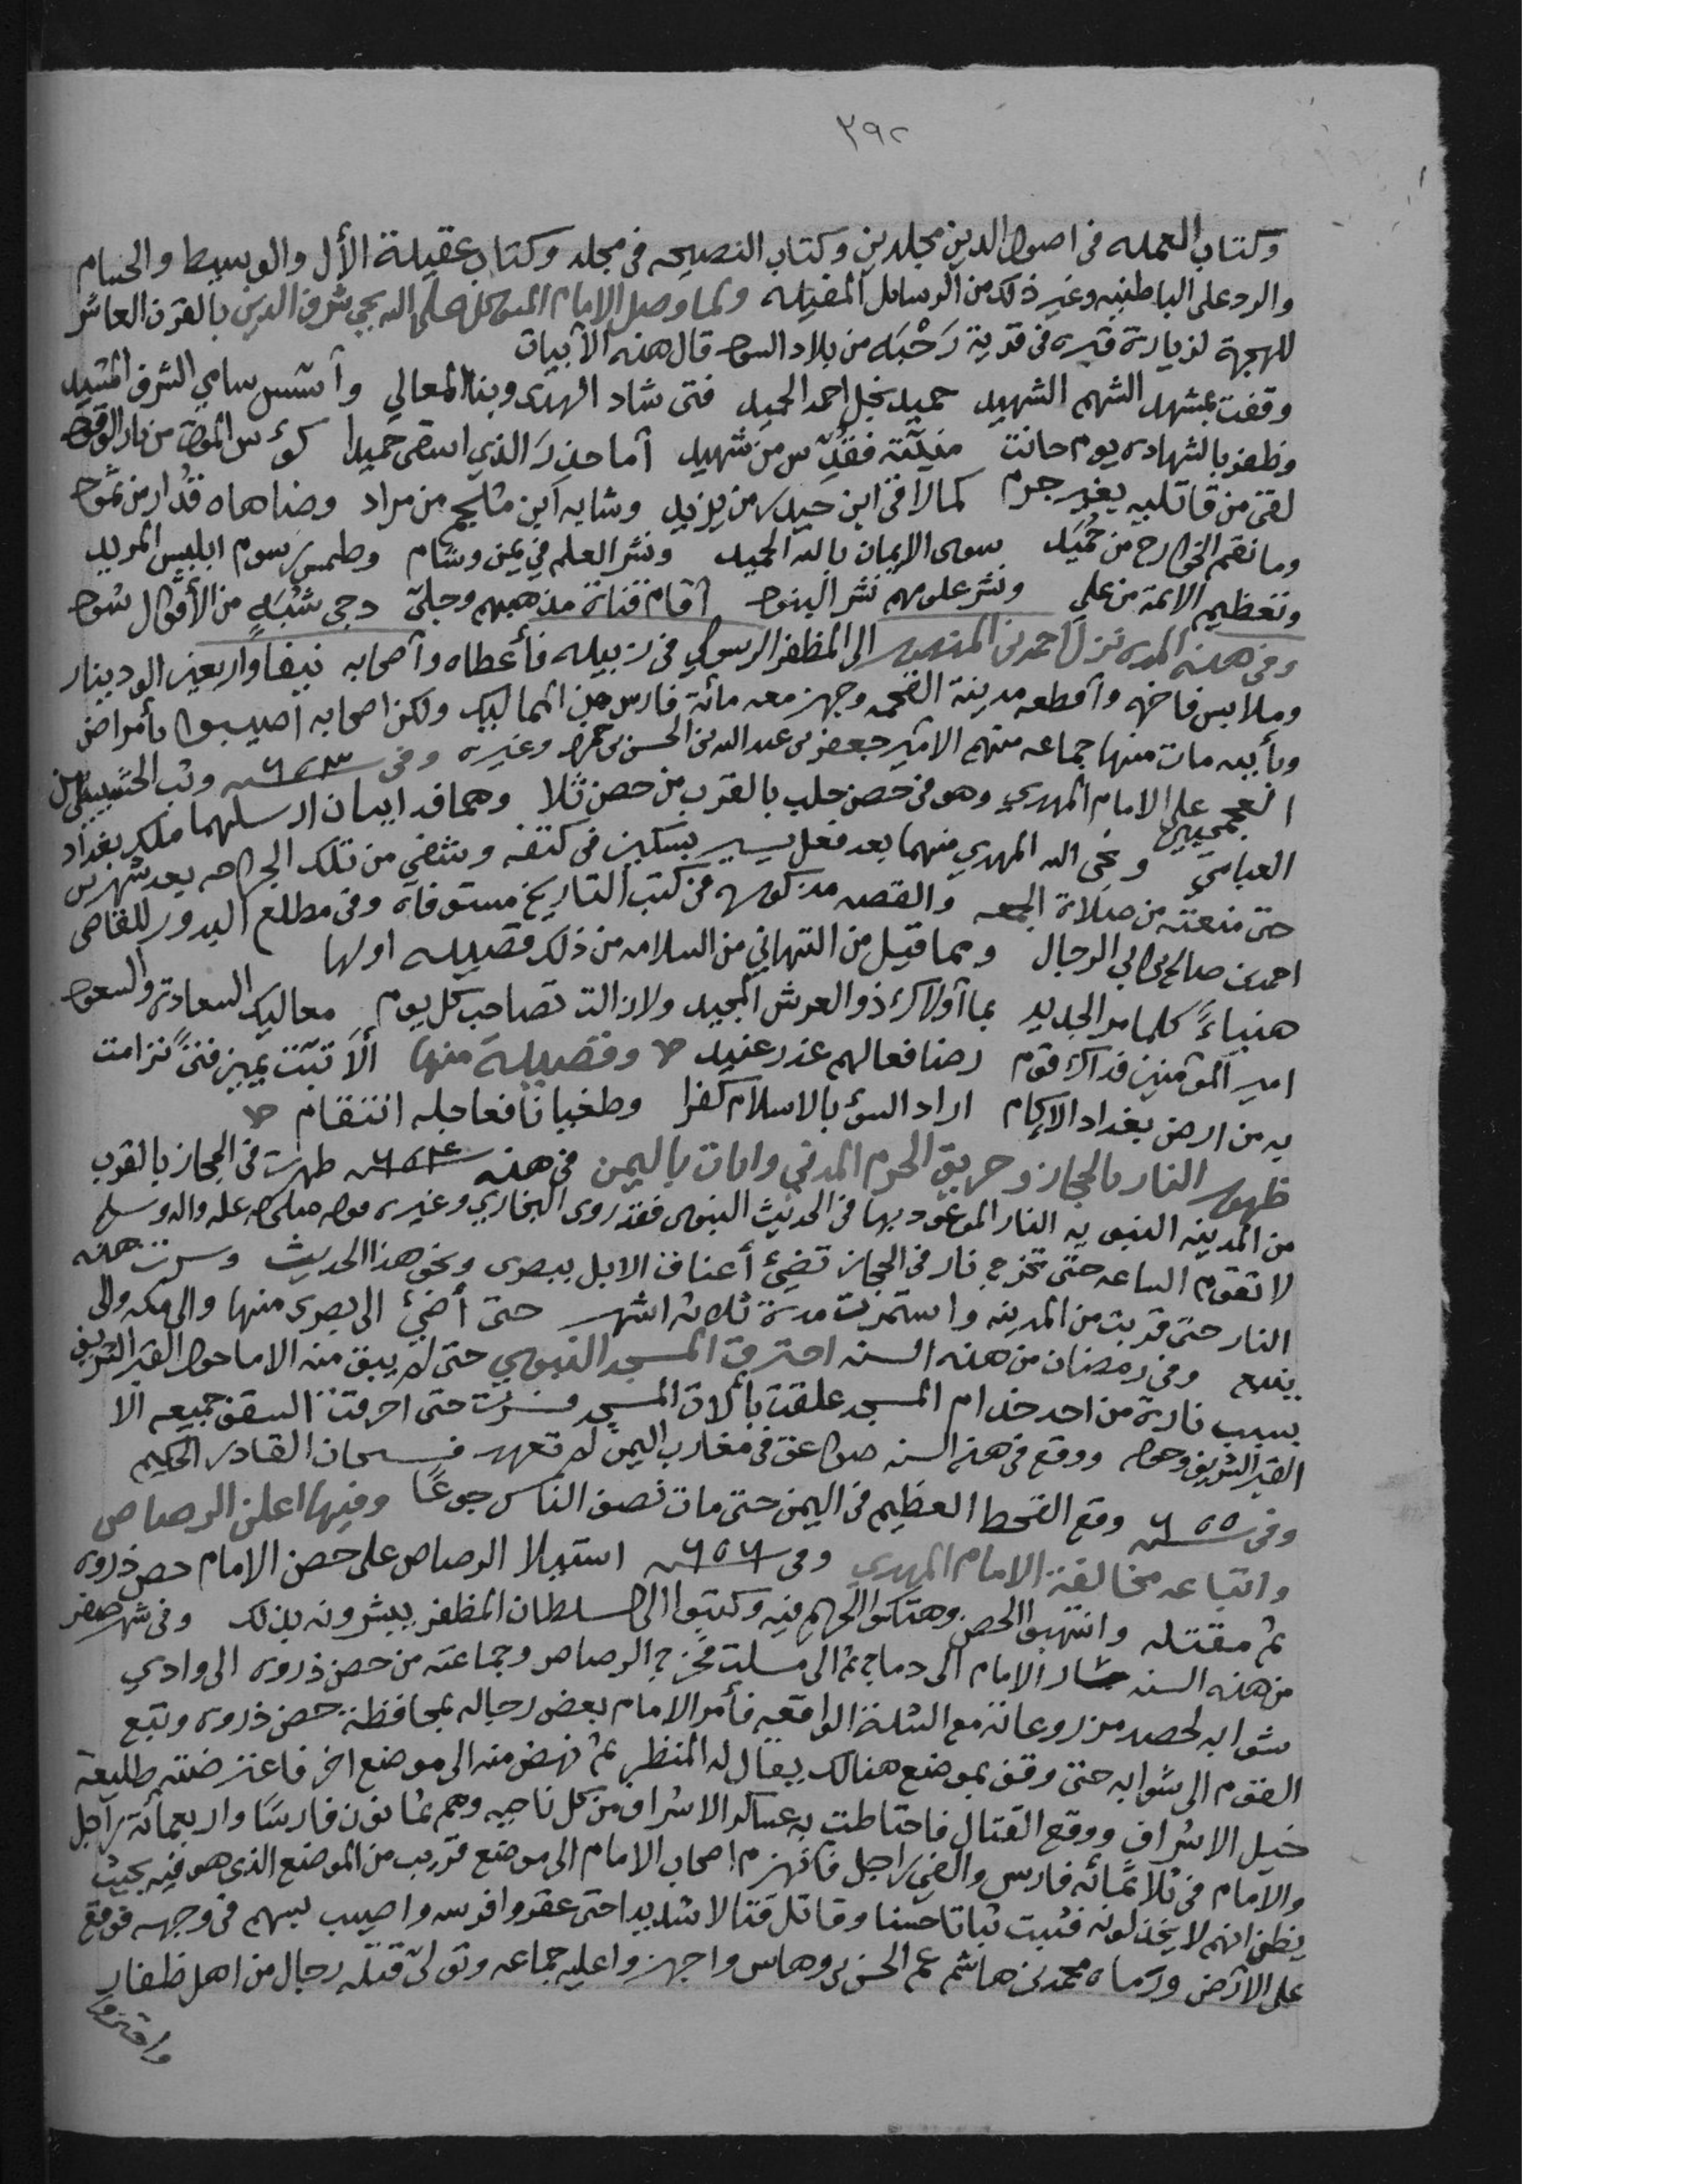 ٣٩٢
وكتاب العمده في اصول الدين مجلدين وكتاب النصيحه في مجلد وكتاب عقيلة الأل والوسيط والحسام
والرد على الباطنيه وغير ذلك من الرسائل المفيده ولما وصل الامام المتوكل على الله يحيى شرف الدين بالقرن العاشر
للهجرة لزيارة قبره في قرية رَحْبَه من بلاد السود قال هذه الأبيات
وقفت بمشهد الشهم الشهيد حميد نجل احمد الحميد فتى شاد الهدى وبنا المعالي وأسس سامي الشرف المشيد
وظفر بالشهاده يوم حانت منيّته فقُدّس من شهيد أما حذرَ الذي اسقى حميدا كوٴس الموت من نار الوقود
لقى من قاتليه بغير جرم كما لاقى ابن حيدر من يزيد وشابه ابن ملجم من مراد وضاهاه قُدار من ثمود
وما نقم الخوارج من حُمَيد سوى الإيمان بالله الحميد ونشر العلم في يمن وشام وطمس رسوم ابليس المريد
وتعظيم الائمة من علي ونشر علومهم نشر البنود أقام قناة مذهبهم وجلىّ دجى شُبَهٍ من الأقوال سود
وفي هذه المده نزل احمد بن المنصور الى المظفر الرسولي في زبيد فأعطاه وأصحابه نيفا واربعين الف دينار
وملابس فاخره وأقطعه مدينة القحمه وجهز معه مائة فارس من المماليك ولكن اصحابه اصيبوا بأمراض
وبأبيه مات منها جماعه منهم الامير جعفر بن عبد الله بن الحسن بن حمزه وغيره وفي سنه ٦٥٣ وثب الحشيشيين
العجميين على الامام المهدي وهو في حصن حلب بالقرب من حصن ثلا وهما فدائيان ارسلهما ملك بغداد
العباسي ونجى الله المهدي منهما بعد فعل يسير بسكين في كتفه وشفي من تلك الجراحه بعد شهرين
حتى منعته من صلاة الجمعه والقصه مذكوره في كتب التاريخ مستوفاه وفي مطلع البدور للقاضي
احمد بن صالح بن ابي الرجال ومما قيل من التهاني من السلامه من ذلك قصيده اولها
هنياءً كلما مر الجديد بما أولاك ذو العرش المجيد ولا زالت تصاحب كل يوم معاليك السعادة والسعود
امير المؤمنين فداك قوم رضا فعالهم عذر عنيد وقصيدة منها ألا تبّت يمين فتىً ترامت
به من ارض بغداد الإكام اراد السوٴ بالاسلام كفرا وطغيانا فعاجله انتقام
ظهور النار بالحجاز وحريق الحرم المدني وايات باليمن في هذه سنه ٦٥٤ ظهرت في الحجاز بالقرب
من المدينه النبويه النار الموعود بها في الحديث النبوى فقد روى البخاري وغيره قوله صلى الله عليه واله وسلم
لا تقوم الساعه حتى تخرج نار في الحجاز تضيئ أعناق الابل ببصرى ونحو هذا الحديث وسرت هذه
النار حتى قربت من المدينه واستمرت مدة ثلاثه اشهر حتى أضيئ الى بصرى منها والى مكه والى
ينبع وفي رمضان من هذه السنه احترق المسجد النبوي حتى لم يبق منه الا ما حول القبر الشريف
بسبب نارة من احد خدام المسجد علقت بألات المسجد فسرت حتى احرقت السقف جميعه الا
القبر الشريف وحوله ووقع في هذه السنه صواعق في مغارب اليمن لم تعهد فسبحان القادر الحكيم
وفي سنه ٦٥٥ وقع القحط العظيم في اليمن حتى مات نصف الناس جوعًا وفيها اعلن الرصاص
واتباعه مخالفة الامام المهدي وفي سنه ٦٥٦ استيلا الرصاص على حصن الامام حصن ذروه
ثم مقتله وانتهبوا الحصن وهتكوا الحريم فيه وكتبوا الى السلطان المظفر يبشرونه بذلك وفي شهر صفر
من هذه السنه سار الامام الى دماج ثم الى مسلت فخرج الرصاص وجماعته من حصن ذروه الى وادي
شوابه لحصد مزروعاته مع الشدة الواقعه فأمر الامام بعض رجاله بمحافظة حصن ذروه وتبع
القوم الى شوابه حتى وقف بموضع هنالك يقال له المنظر ثم نهض منه الى موضع اخر فاعترضته طليعة
خيل الاشراف ووقع القتال فاحتاطت به عساكر الاشراف من كل ناحيه وهم ثمانون فارسًا واربعمائة راجل
والامام في ثلاثمائه فارس والفي راجل فانهزم اصحاب الامام الى موضع قريب من الموضع الذي هو فيه بحيث
يظن انهم لا يخذلونه فثبت ثباتا حسنا وقاتل قتالا شديدا حتى عقروا فرسه واصيب بسهم في وجهه فوقع
على الارض ورماه محمد بن هاشم عم الحسن بن وهاس واجهز واعليه جماعه وتولى قتله رجال من اهل ظفار
واحتزوا